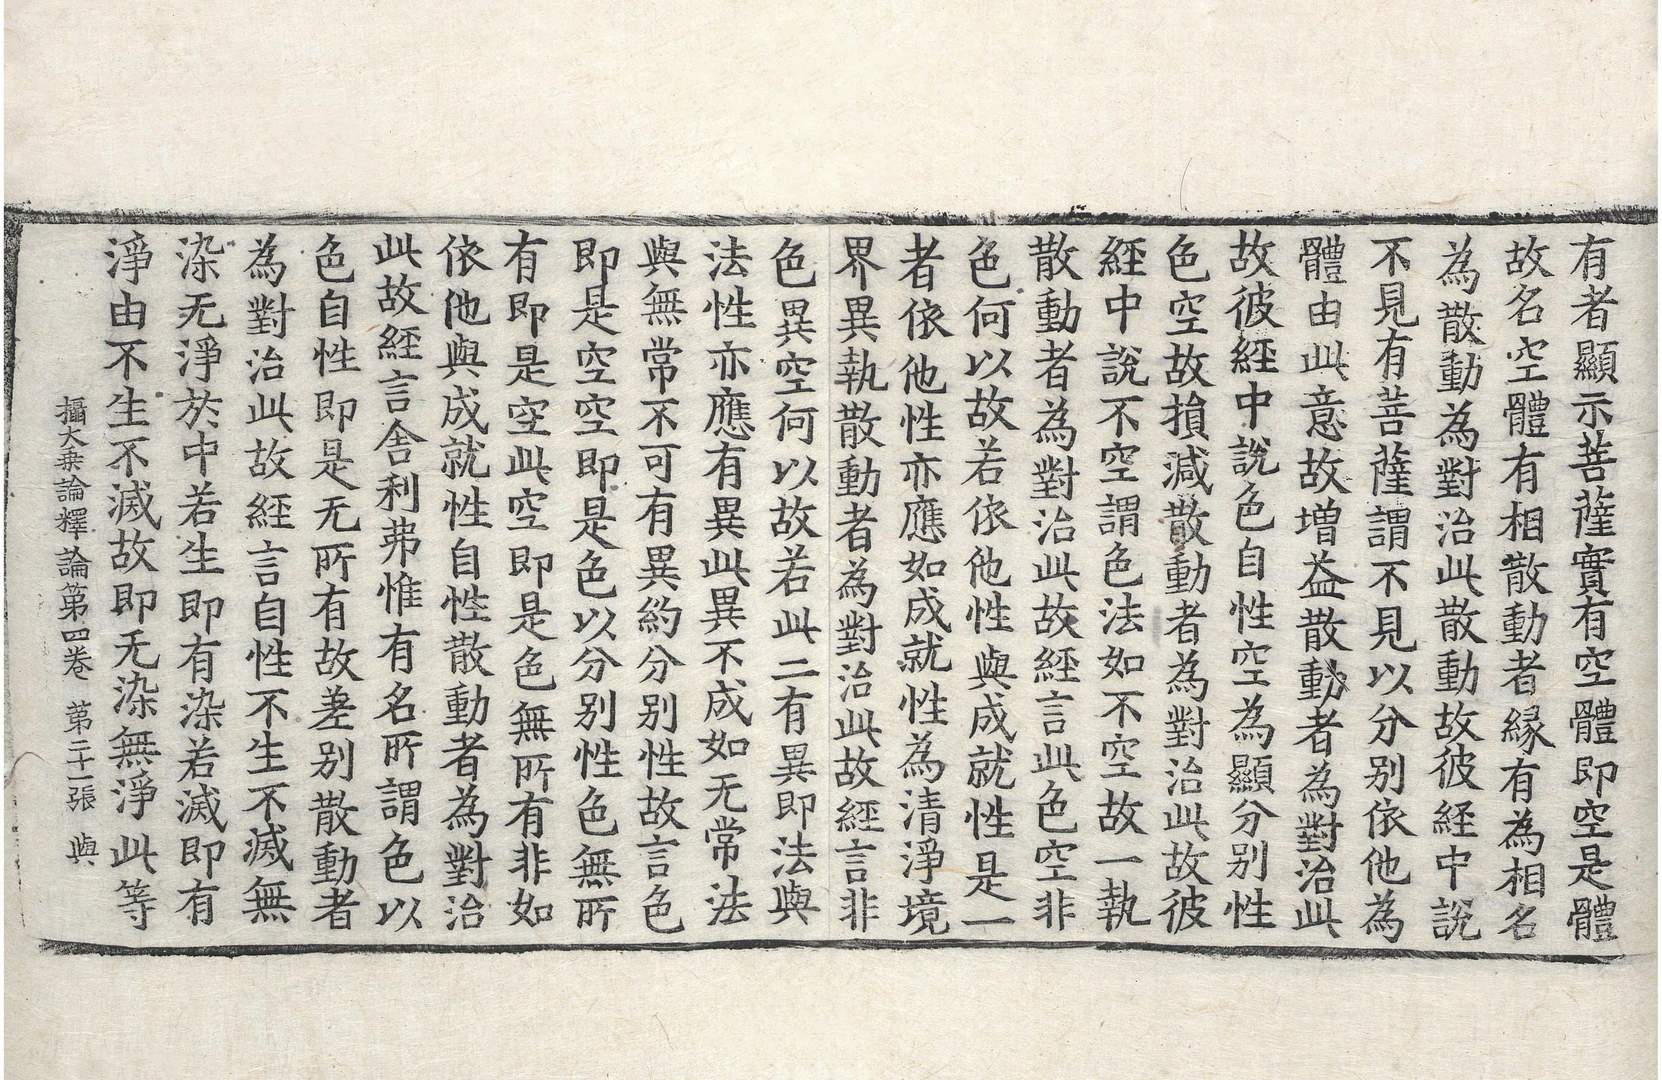 有者顯示菩薩實有空體即空是體
故名空體有相散動者縁有為相名
為散動為對治此散動故彼經中說
不見有菩薩謂不見以分别依他為
體由此意故增益散動者為對治此
故彼經中說色自性空為顯分别性
色空故損減散動者為對治此故彼
經中說不空謂色法如不空故一執
散動者為對治此故經言此色空非
色何以故若依他性與成就性是一
者依他性亦應如成就性為清淨境
界異執散動者為對治此故經言非
色異空何以故若此二有異即法與
法性亦應有異此異不成如无常法
與無常不可有異約分别性故言色
即是空空即是色以分别性色無所
有即是空此空即是色無所有非如
依他與成就性自性散動者為對治
此故經言舍利弗惟有名所謂色以
色自性即是无所有故差别散動者
為對治此故經言自性不生不滅無
染无淨於中若生即有染若滅即有
淨由不生不滅故即无染無淨此等
攝大乗論釋論第四卷　第二十一張　與